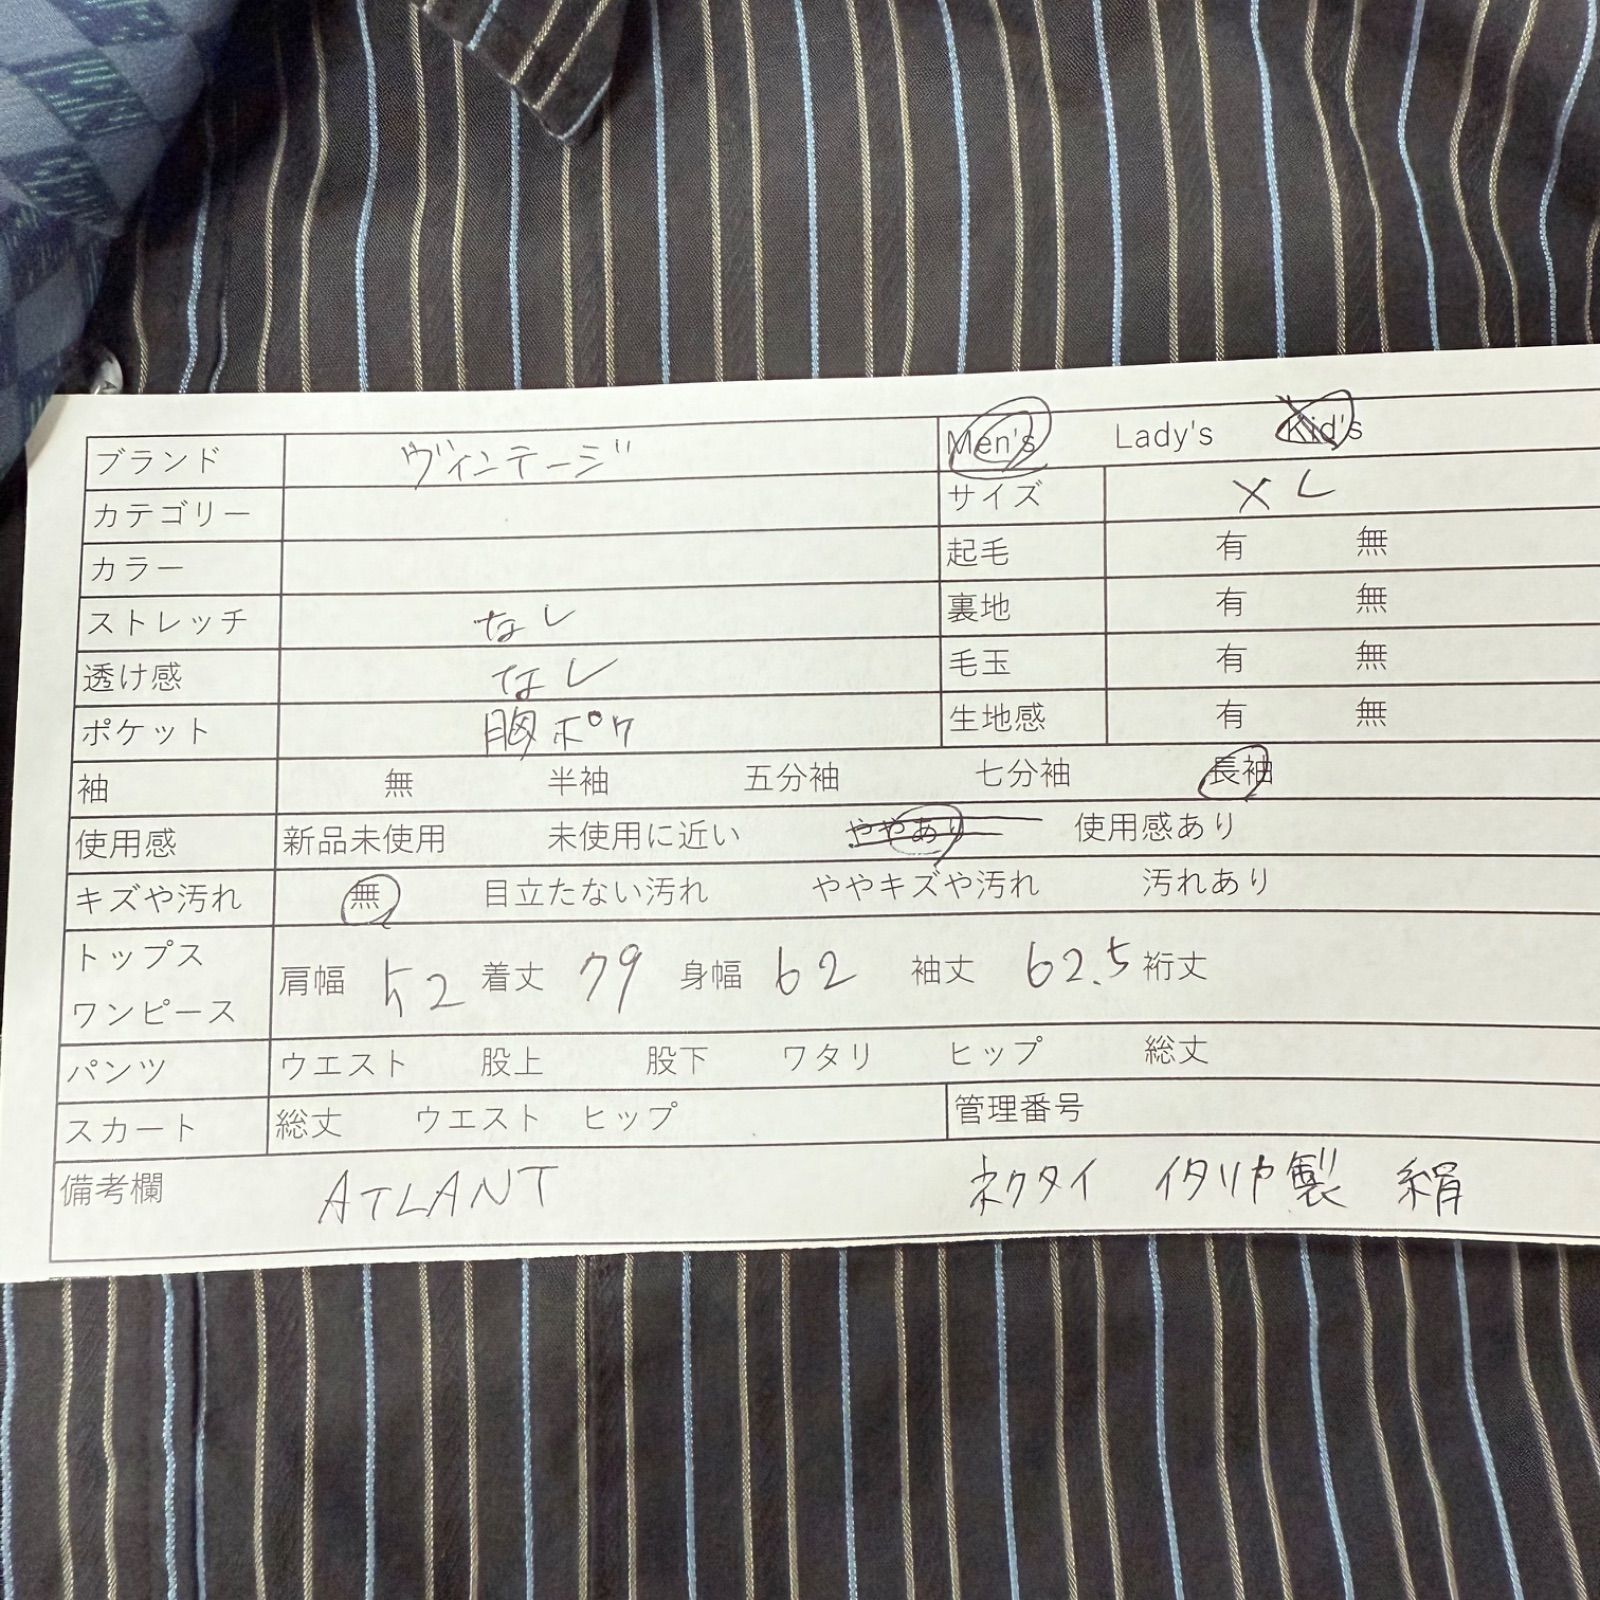 ブランド ヴィンテージ Men's Lady's Kid's
カテゴリー サイズ XL
カラー 起毛 有 無
ストレッチ なし 裏地 有 無
透け感 なし 毛玉 有 無
ポケット 胸ポケ 生地感 有 無
袖 無 半袖 五分袖 七分袖 長袖
使用感 新品未使用 未使用に近い ややあり 使用感あり
キズや汚れ 無 目立たない汚れ ややキズや汚れ 汚れあり
トップス
ワンピース 肩幅 52 着丈 79 身幅 62 袖丈 62.5 裄丈
パンツ ウエスト 股上 股下 ワタリ ヒップ 総丈
スカート 総丈 ウエスト ヒップ 管理番号
備考欄 ATLANT ネクタイ イタリヤ製 絹